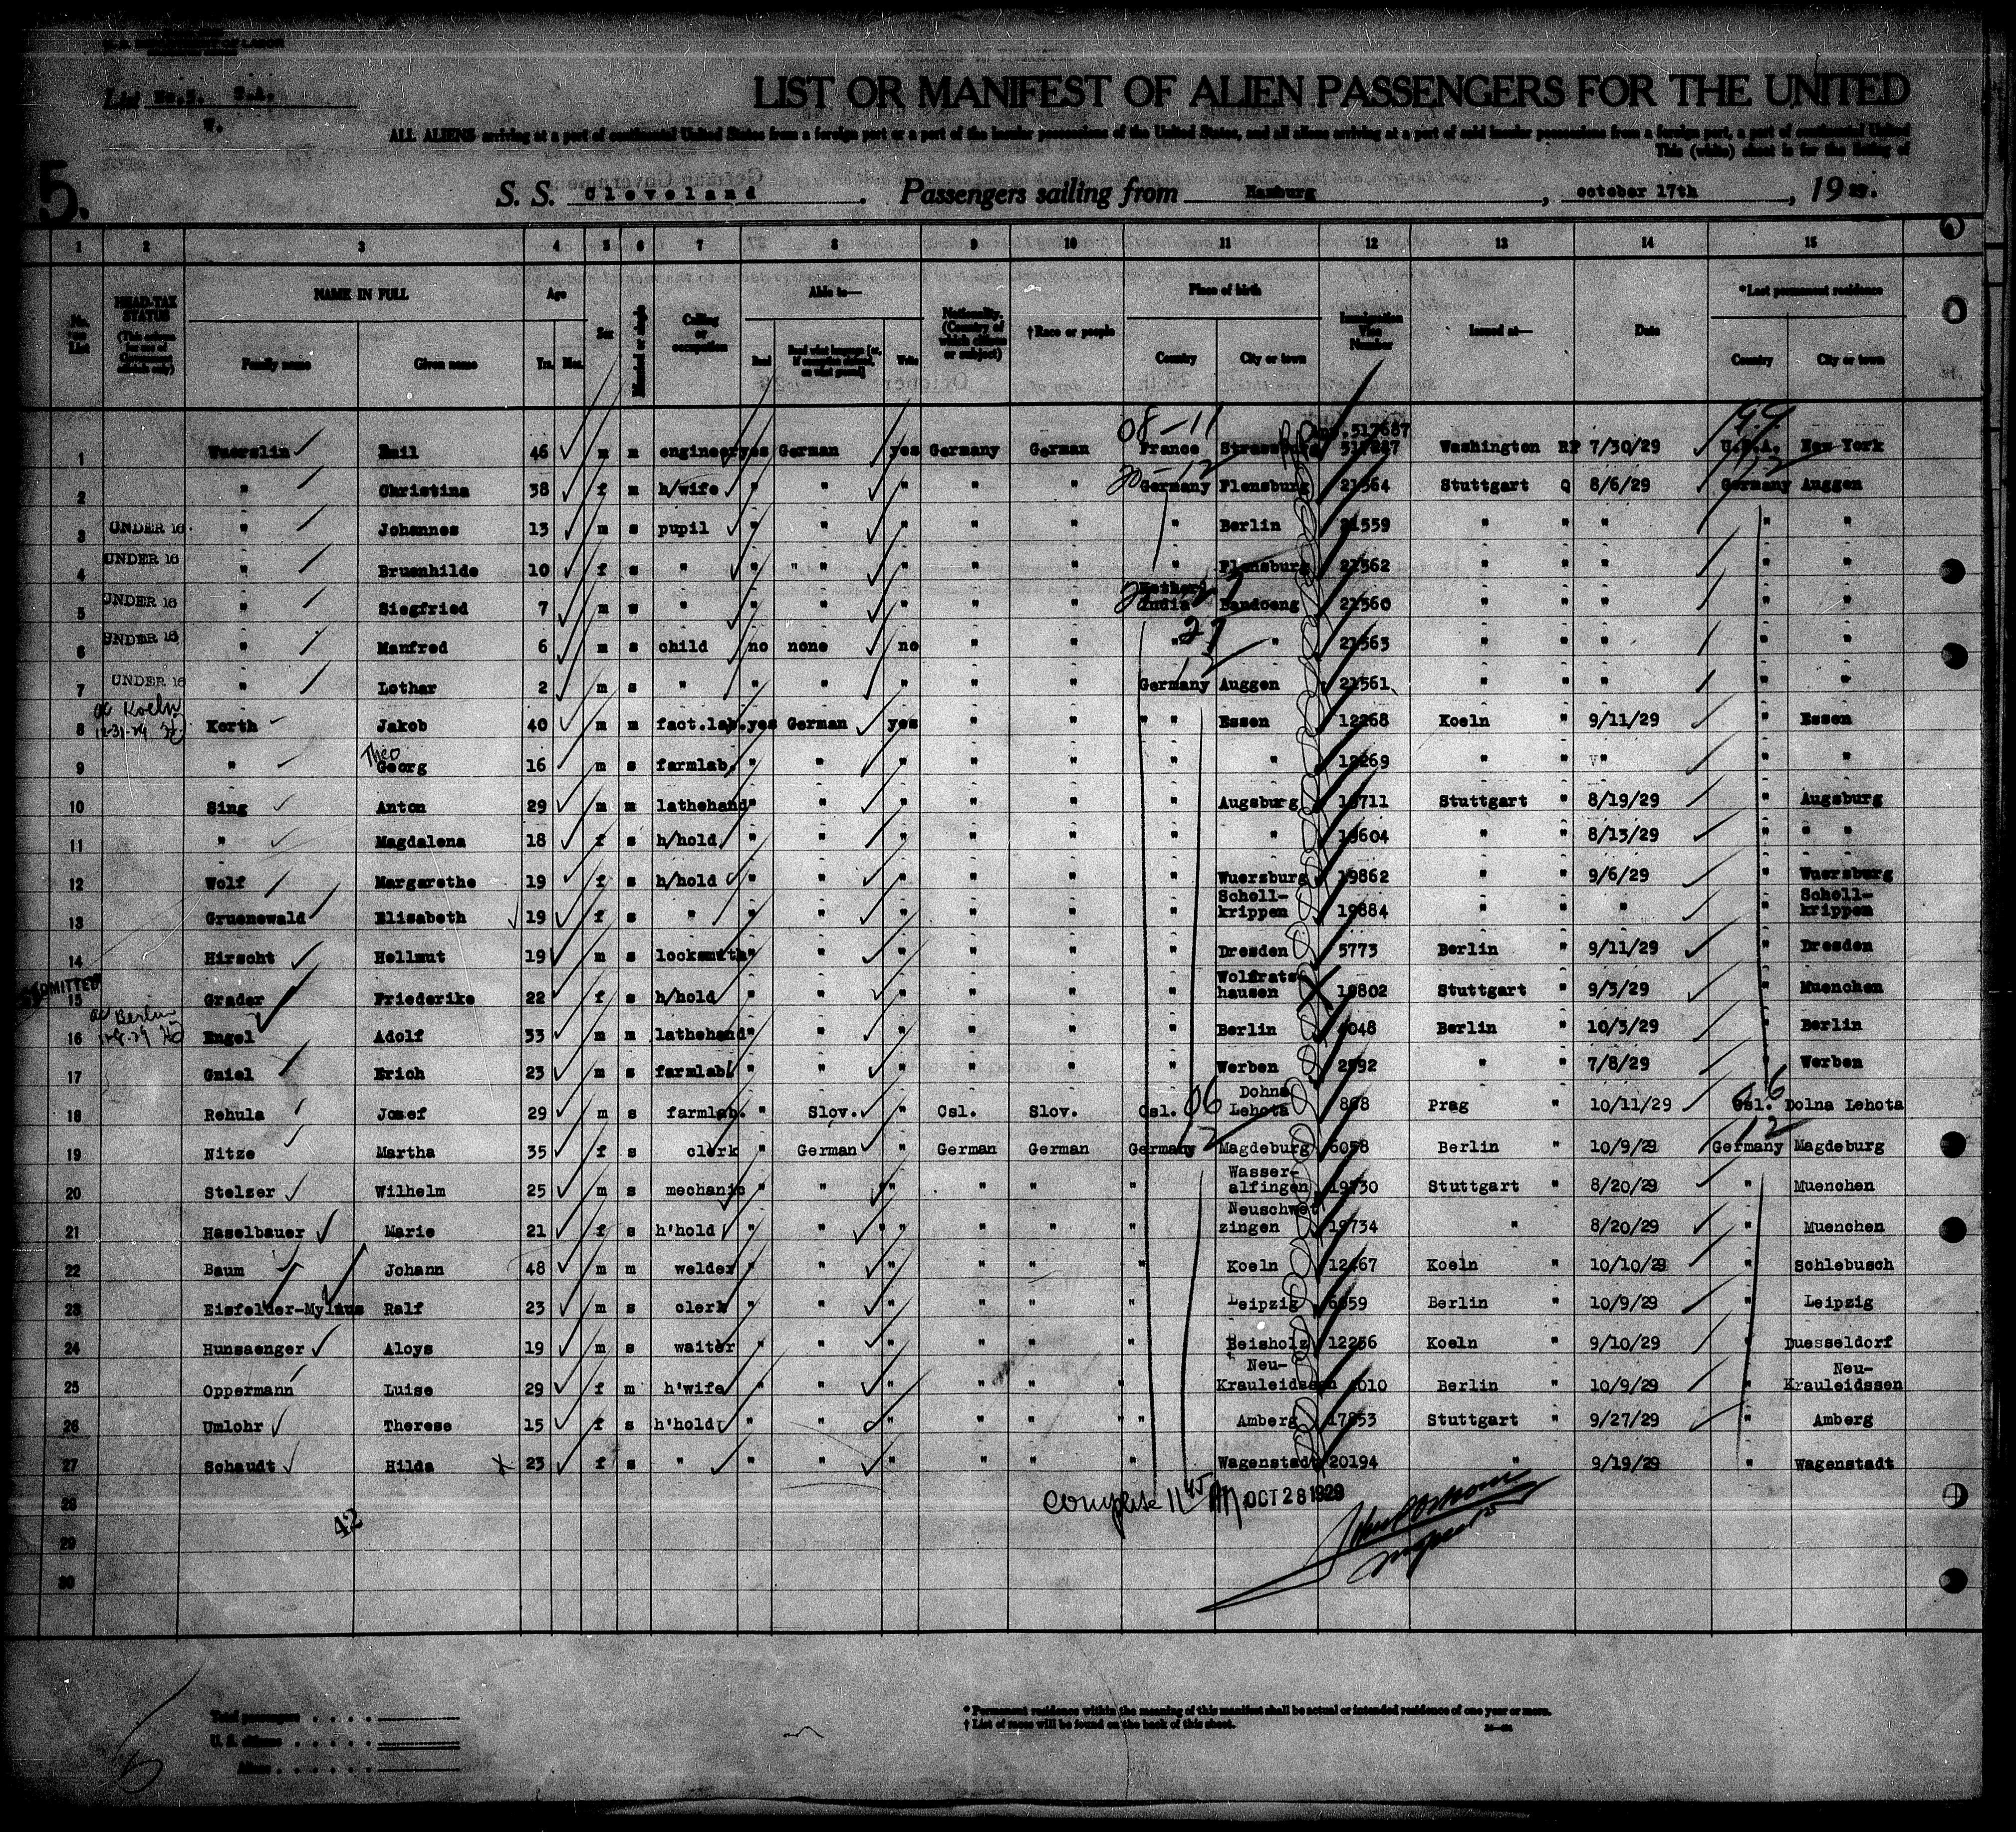 List No. 5. U.A.
W.
5.
LIST OR MANIFEST OF ALIEN PASSENGERS FOR THE UNITED
ALL ALIENS arriving at a port of continental United States from a foreign port or a port of the insular possessions of the United States, and all aliens arriving at a port of said insular possessions from a foreign port, a port of continental United
This (white) sheet is for the listing of
S. S. Cleveland. Passengers sailing from Hamburg, october 17th, 1929.
1 2 3 4 5 6 7 8 9 10 11 12 13 14 15
No. on List HEAD-TAX STATUS NAME IN FULL Age Sex Married or single Calling or occupation Able to— Nationality. (Country of which citizen or subject) †Race or people Place of birth Immigration Visa Number Issued at— Date *Last permanent residence
Family name Given name Yrs. Mos. Read Write Country City or town Country City or town
08-11 99
1 Wuerslin Emil 46 m m engineer yes German yes Germany German France Strassburg 517887 Washington RP 7/30/29 U.S.A. New-York
2 " Christina 38 f m h/wife " " " " " Germany Flensburg 21564 Stuttgart Q 8/6/29 Germany Auggen
3 UNDER 16 " Johannes 13 m s pupil " " " " " " Berlin 21559 " " " " "
4 UNDER 16 " Bruenhilde 10 f s " " " " " " " " Flensburg 21562 " " " " "
5 UNDER 16 " Siegfried 7 m s " " " " " " India Bandoeng 21560 " " " " "
6 UNDER 16 " Manfred 6 m s child no none no " " " " 21563 " " " " "
7 UNDER 16 " Lothar 2 m s " " " " " " Germany Auggen 21561 " " " " "
8 Koeln Korth Jakob 40 m m fact.lab. yes German yes " " " " Essen 12268 Koeln " 9/11/29 " Essen
Theo
9 " Georg 16 m s farmlab. " " " " " " " 12269 " " " " "
10 Sing Anton 29 m m lathehand " " " " " " Augsburg 19711 Stuttgart " 8/19/29 " Augsburg
11 " Magdalena 18 f s h/hold " " " " " " " 19604 " " 8/13/29 " " "
12 Wolf Margarethe 19 f s h/hold " " " " " " Wuersburg 19862 " " 9/6/29 " Wuersburg
13 Gruenewald Elisabeth 19 f s " " " " " " " Schoell-krippen 19884 " " " " Schoell-krippen
14 Hirscht Hellmut 19 m s locksmith " " " " " " Dresden 5773 Berlin " 9/11/29 " Dresden
ADMITTED
15 Grader Friederike 22 f s h/hold " " " " " " Wolfrats-hausen 19802 Stuttgart " 9/3/29 " Muenchen
16 Berlin Engel Adolf 33 m m lathehand " " " " " " Berlin 6048 Berlin " 10/3/29 " Berlin
17 Gniel Erich 23 m s farmlab. " " " " " " Werben 2892 " " 7/8/29 " Werben
18 Rehula Josef 29 m s farmlab. " Slov. " Csl. Slov. Csl. 06 Dohna Lehota 868 Prag " 10/11/29 Csl. Dolna Lehota
19 Nitze Martha 35 f s clerk " German " German German Germany Magdeburg 6058 Berlin " 10/9/29 Germany Magdeburg
20 Stelzer Wilhelm 25 m s mechanic " " " " " " Wasser-alfingen 19730 Stuttgart " 8/20/29 " Muenchen
21 Haselbauer Marie 21 f s h'hold " " " " " " Neuschwetzingen 19734 " 8/20/29 " Muenchen
22 Baum Johann 48 m m welder " " " " " " Koeln 12467 Koeln " 10/10/29 " Schlebusch
23 Eisfelder-Mylius Ralf 23 m s clerk " " " " " " Leipzig 6059 Berlin " 10/9/29 " Leipzig
24 Hunsaenger Aloys 19 m s waiter " " " " " " Beisholz 12256 Koeln " 9/10/29 " Duesseldorf
25 Oppermann Luise 29 f m h'wife " " " " " " Neu-Krauleidssen 6010 Berlin " 10/9/29 " Neu-Krauleidssen
26 Umlohr Therese 15 f s h'hold " " " " " " " Amberg 17853 Stuttgart " 9/27/29 " Amberg
27 Schaudt Hilda 23 f s " " " " " " " Wagenstadt 20194 " 9/19/29 " Wagenstadt
28 Complete 11 45 AM OCT 28 1929
42
29
30
Total passengers
U. S. citizens
Aliens
* Permanent residence within the meaning of this manifest shall be actual or intended residence of one year or more.
† List of races will be found on the back of this sheet.